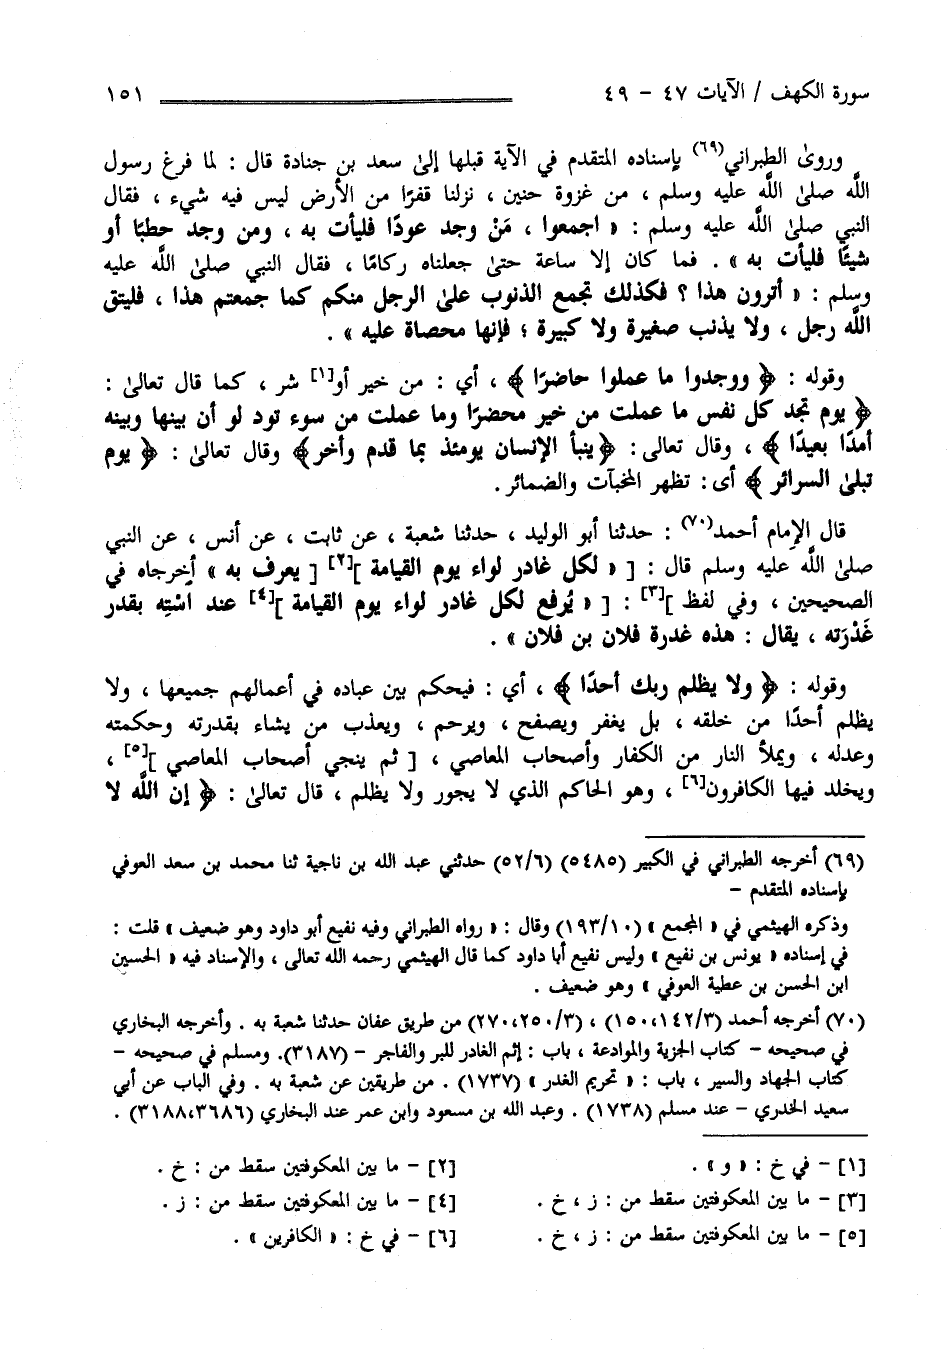 سورة الكهف / الآيات ٤٧ - ٤٩ ١٥١
وروىٰ الطبراني(٦٩) بإسناده المتقدم في الآية قبلها إلىٰ سعد بن جنادة قال : لما فرغ رسول
اللَّه صلىٰ اللَّه عليه وسلم ، من غزوة حنين ، نزلنا قفرًا من الأرض ليس فيه شيء ، فقال
النبي صلىٰ اللَّه عليه وسلم : « اجمعوا ، مَنْ وجد عودًا فليأت به ، ومن وجد حطبًا أو
شيئًا فليأت به » . فما كان إلا ساعة حتىٰ جعلناه ركامًا ، فقال النبي صلىٰ اللَّه عليه
وسلم : « أترون هذا ؟ فكذلك تجمع الذنوب علىٰ الرجل منكم كما جمعتم هذا ، فليتق
اللَّه رجل ، ولا يذنب صغيرة ولا كبيرة ؛ فإنها محصاة عليه » .
وقوله : ﴿ ووجدوا ما عملوا حاضرًا ﴾ ، أي : من خير أو[١] شر ، كما قال تعالىٰ :
﴿ يوم تجد كل نفس ما عملت من خير محضرًا وما عملت من سوء تود لو أن بينها وبينه
أمدًا بعيدًا ﴾ ، وقال تعالى : ﴿ينبأ الإنسان يومئذ بما قدم وأخر﴾ وقال تعالىٰ : ﴿ يوم
تبلىٰ السرائر ﴾ أى : تظهر المخبآت والضمائر .
قال الإمام أحمد(٧٠) : حدثنا أبو الوليد ، حدثنا شعبة ، عن ثابت ، عن أنس ، عن النبي
صلىٰ اللَّه عليه وسلم قال : [ « لكل غادر لواء يوم القيامة ][٢] [ يعرف به » أخرجاه في
الصحيحين ، وفي لفظ ][٣] : [ « يُرفع لكل غادر لواء يوم القيامة ][٤] عند اسْتِه بقدر
غَدْرَته ، يقال : هذه غدرة فلان بن فلان » .
وقوله : ﴿ ولا يظلم ربك أحدًا ﴾ ، أي : فيحكم بين عباده في أعمالهم جميعها ، ولا
يظلم أحدًا من خلقه ، بل يغفر ويصفح ، ويرحم ، ويعذب من يشاء بقدرته وحكمته
وعدله ، ويملأ النار من الكفار وأصحاب المعاصي ، [ ثم ينجي أصحاب المعاصي ][٥] ،
ويخلد فيها الكافرون[٦] ، وهو الحاكم الذي لا يجور ولا يظلم ، قال تعالىٰ : ﴿ إن اللَّه لا
(٦٩) أخرجه الطبراني في الكبير (٥٤٨٥) (٥٢/٦) حدثني عبد الله بن ناجية ثنا محمد بن سعد العوفي
بإسناده المتقدم -
وذكره الهيثمي في « المجمع » (١٩٣/١٠) وقال : « رواه الطبراني وفيه نفيع أبو داود وهو ضعيف » قلت :
في إسناده « يونس بن نفيع » وليس نفيع أبا داود كما قال الهيثمي رحمه الله تعالى ، والإسناد فيه « الحسين
ابن الحسن بن عطية العوفي » وهو ضعيف .
(٧٠) أخرجه أحمد (١٥٠،١٤٢/٣) ، (٢٧٠،٢٥٠/٣) من طريق عفان حدثنا شعبة به . وأخرجه البخاري
في صحيحه - كتاب الجزية والموادعة ، باب : إثم الغادر للبر والفاجر - (٣١٨٧). ومسلم في صحيحه -
كتاب الجهاد والسير ، باب : « تحريم الغدر » (١٧٣٧) . من طريقين عن شعبة به . وفي الباب عن أبي
سعيد الخدري - عند مسلم (١٧٣٨) . وعبد الله بن مسعود وابن عمر عند البخاري (٣١٨٨،٣٦٨٦) .
[١] - في خ : « و » .
[٢] - ما بين المعكوفتين سقط من : خ .
[٣] - ما بين المعكوفتين سقط من : ز ، خ .
[٤] - ما بين المعكوفتين سقط من : ز .
[٥] - ما بين المعكوفتين سقط من : ز ، خ .
[٦] - في خ : « الكافرين » .